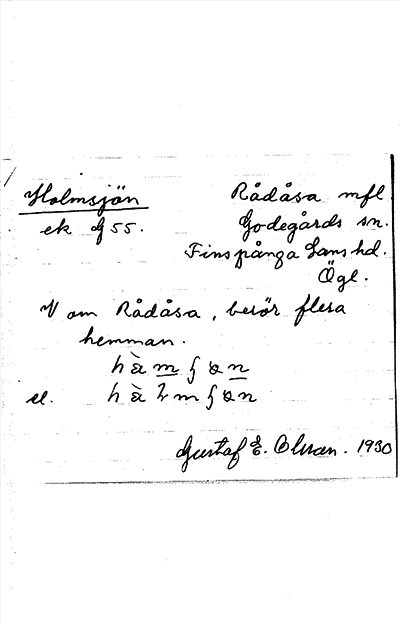 Holmsjön Rådåsa mfl.
ek G 55. Godegårds sn.
Finspånga läns hd.
Ögl.
V om Rådåsa, berör flera
hemman.
el.
Gustaf E. Olsson. 1930